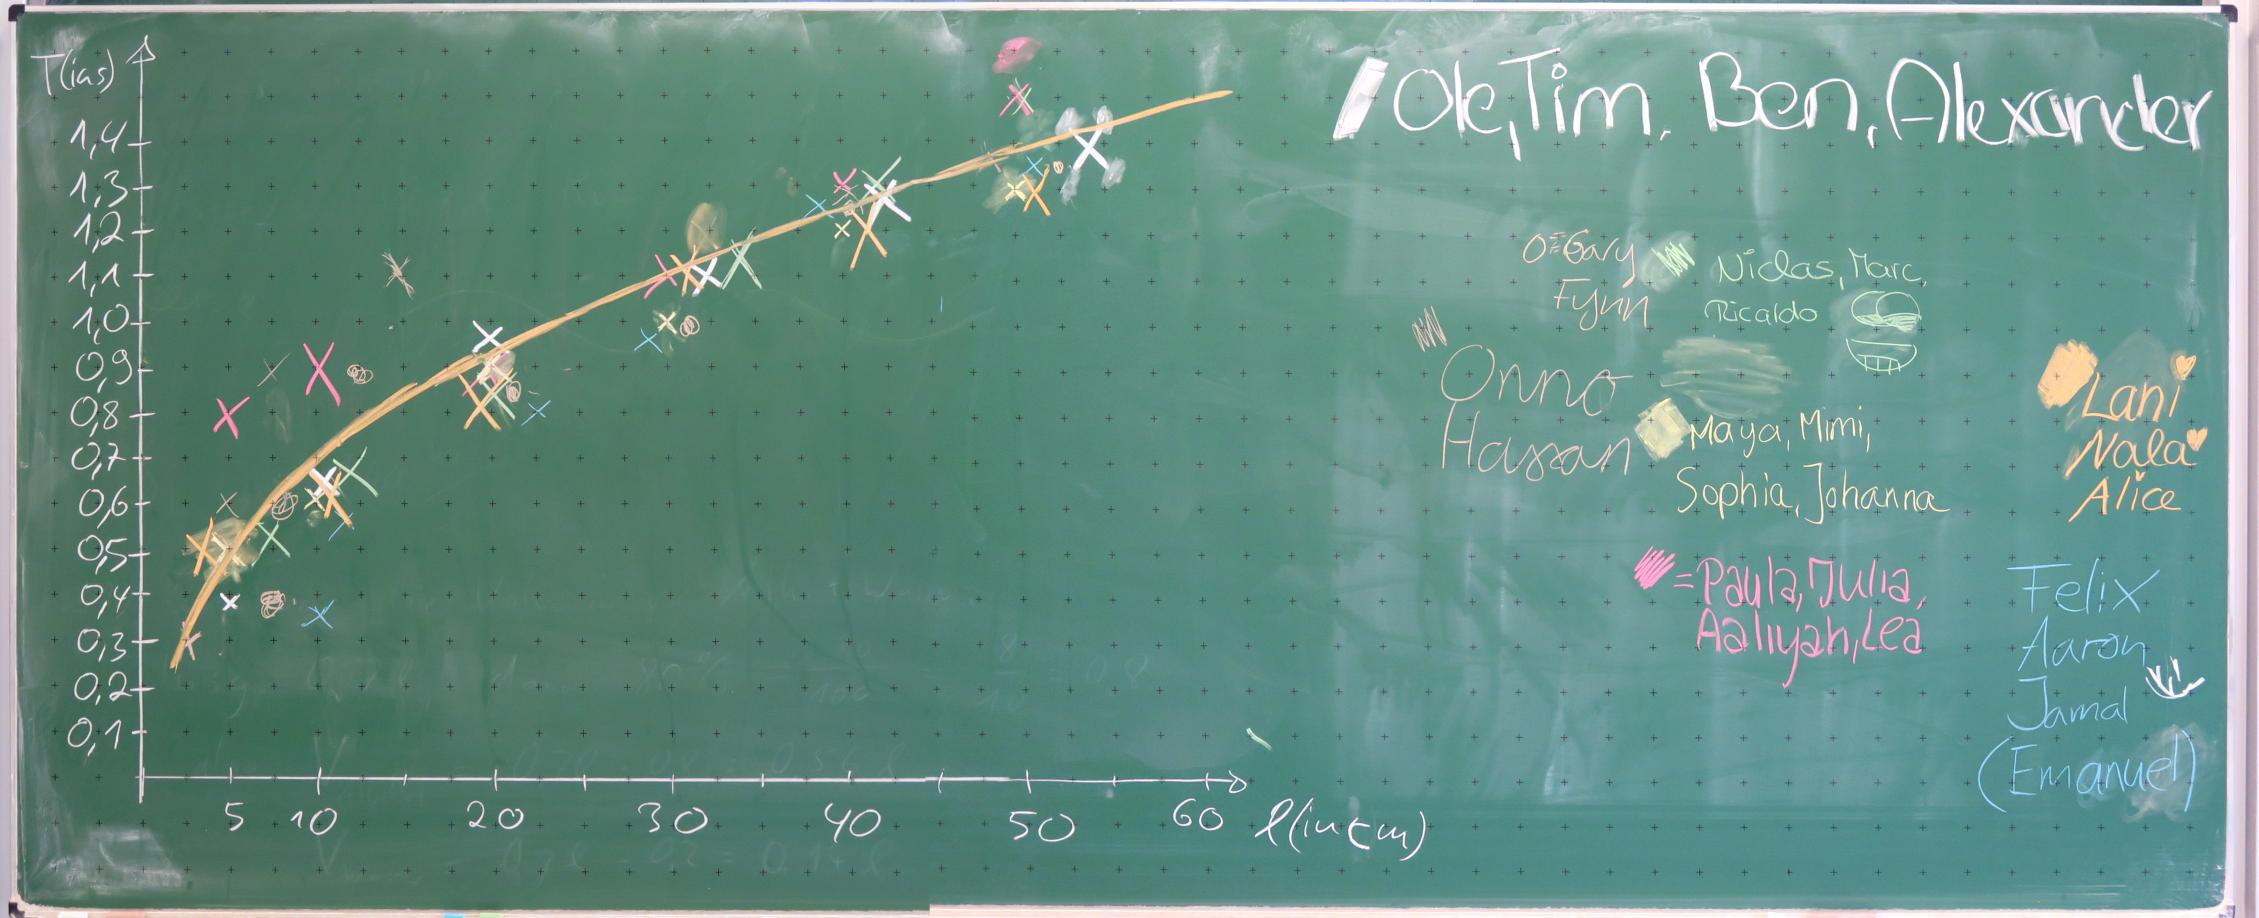 T(in s)
1,4
1,3
1,2
1,1
1,0
0,9
0,8
0,7
0,6
0,5
0,4
0,3
0,2
0,1
5 10 20 30 40 50 60 l(in cm)
Ole, Tim, Ben, Alexander
O = Gary
Fynn
Niclas, Marc,
Ricaldo
Onno
Hassan
Maya, Mimi,
Sophia, Johanna
Lani
Nala
Alice
= Paula, Julia,
Aaliyah, Lea
Felix
Aaron
Jamal
(Emanuel)